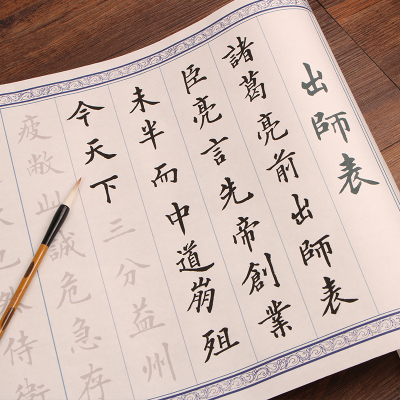 出師表
諸葛亮前出師表
臣亮言先帝創業
未半而中道崩殂
今天下三分益州
疲敝此誠危急存
侍衛